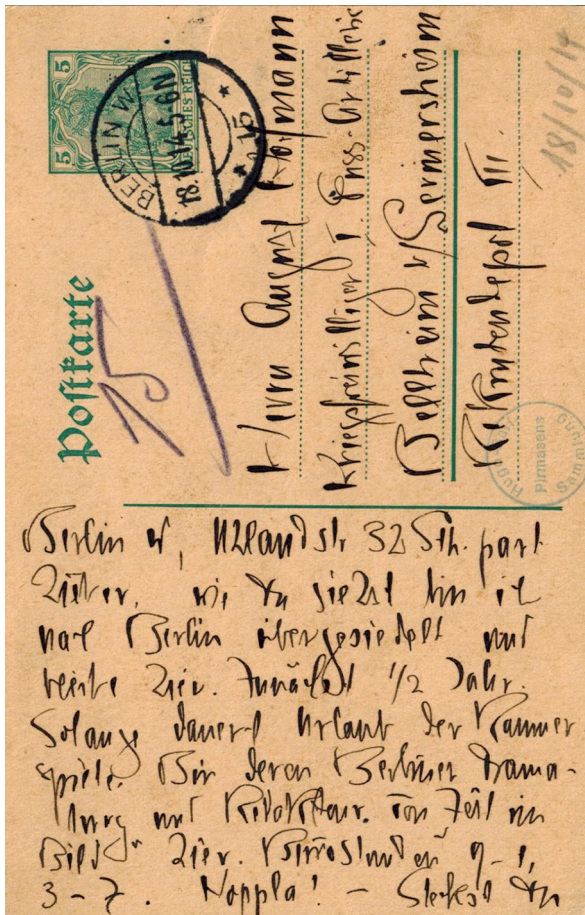 Postkarte
5 5
DEUTSCHES REICH
BERLIN W.
18.10.14. 5-6N
* 15 *
18/10/14
15
Herrn August Hofmann
Kriegsfreiwilliger I. Fuss-Artillerie
Bellheim b/Germersheim
Rekrutendepot III.
Hugo
Pirmasens
Sammlung
Berlin W, Uhlandstr 32 Gth. part
Lieber, wie du siehst bin ich
nach Berlin übergesiedelt und
bleibe hier. Zunächst 1/2 Jahr.
Solange dauert Urlaub der Kammer
spiele. Bin deren Berliner Drama-
turg und Redakteur. von Zeit im
Bild" hier. Bürostunden 9-1,
3-7. Hoppla! - Steckst du